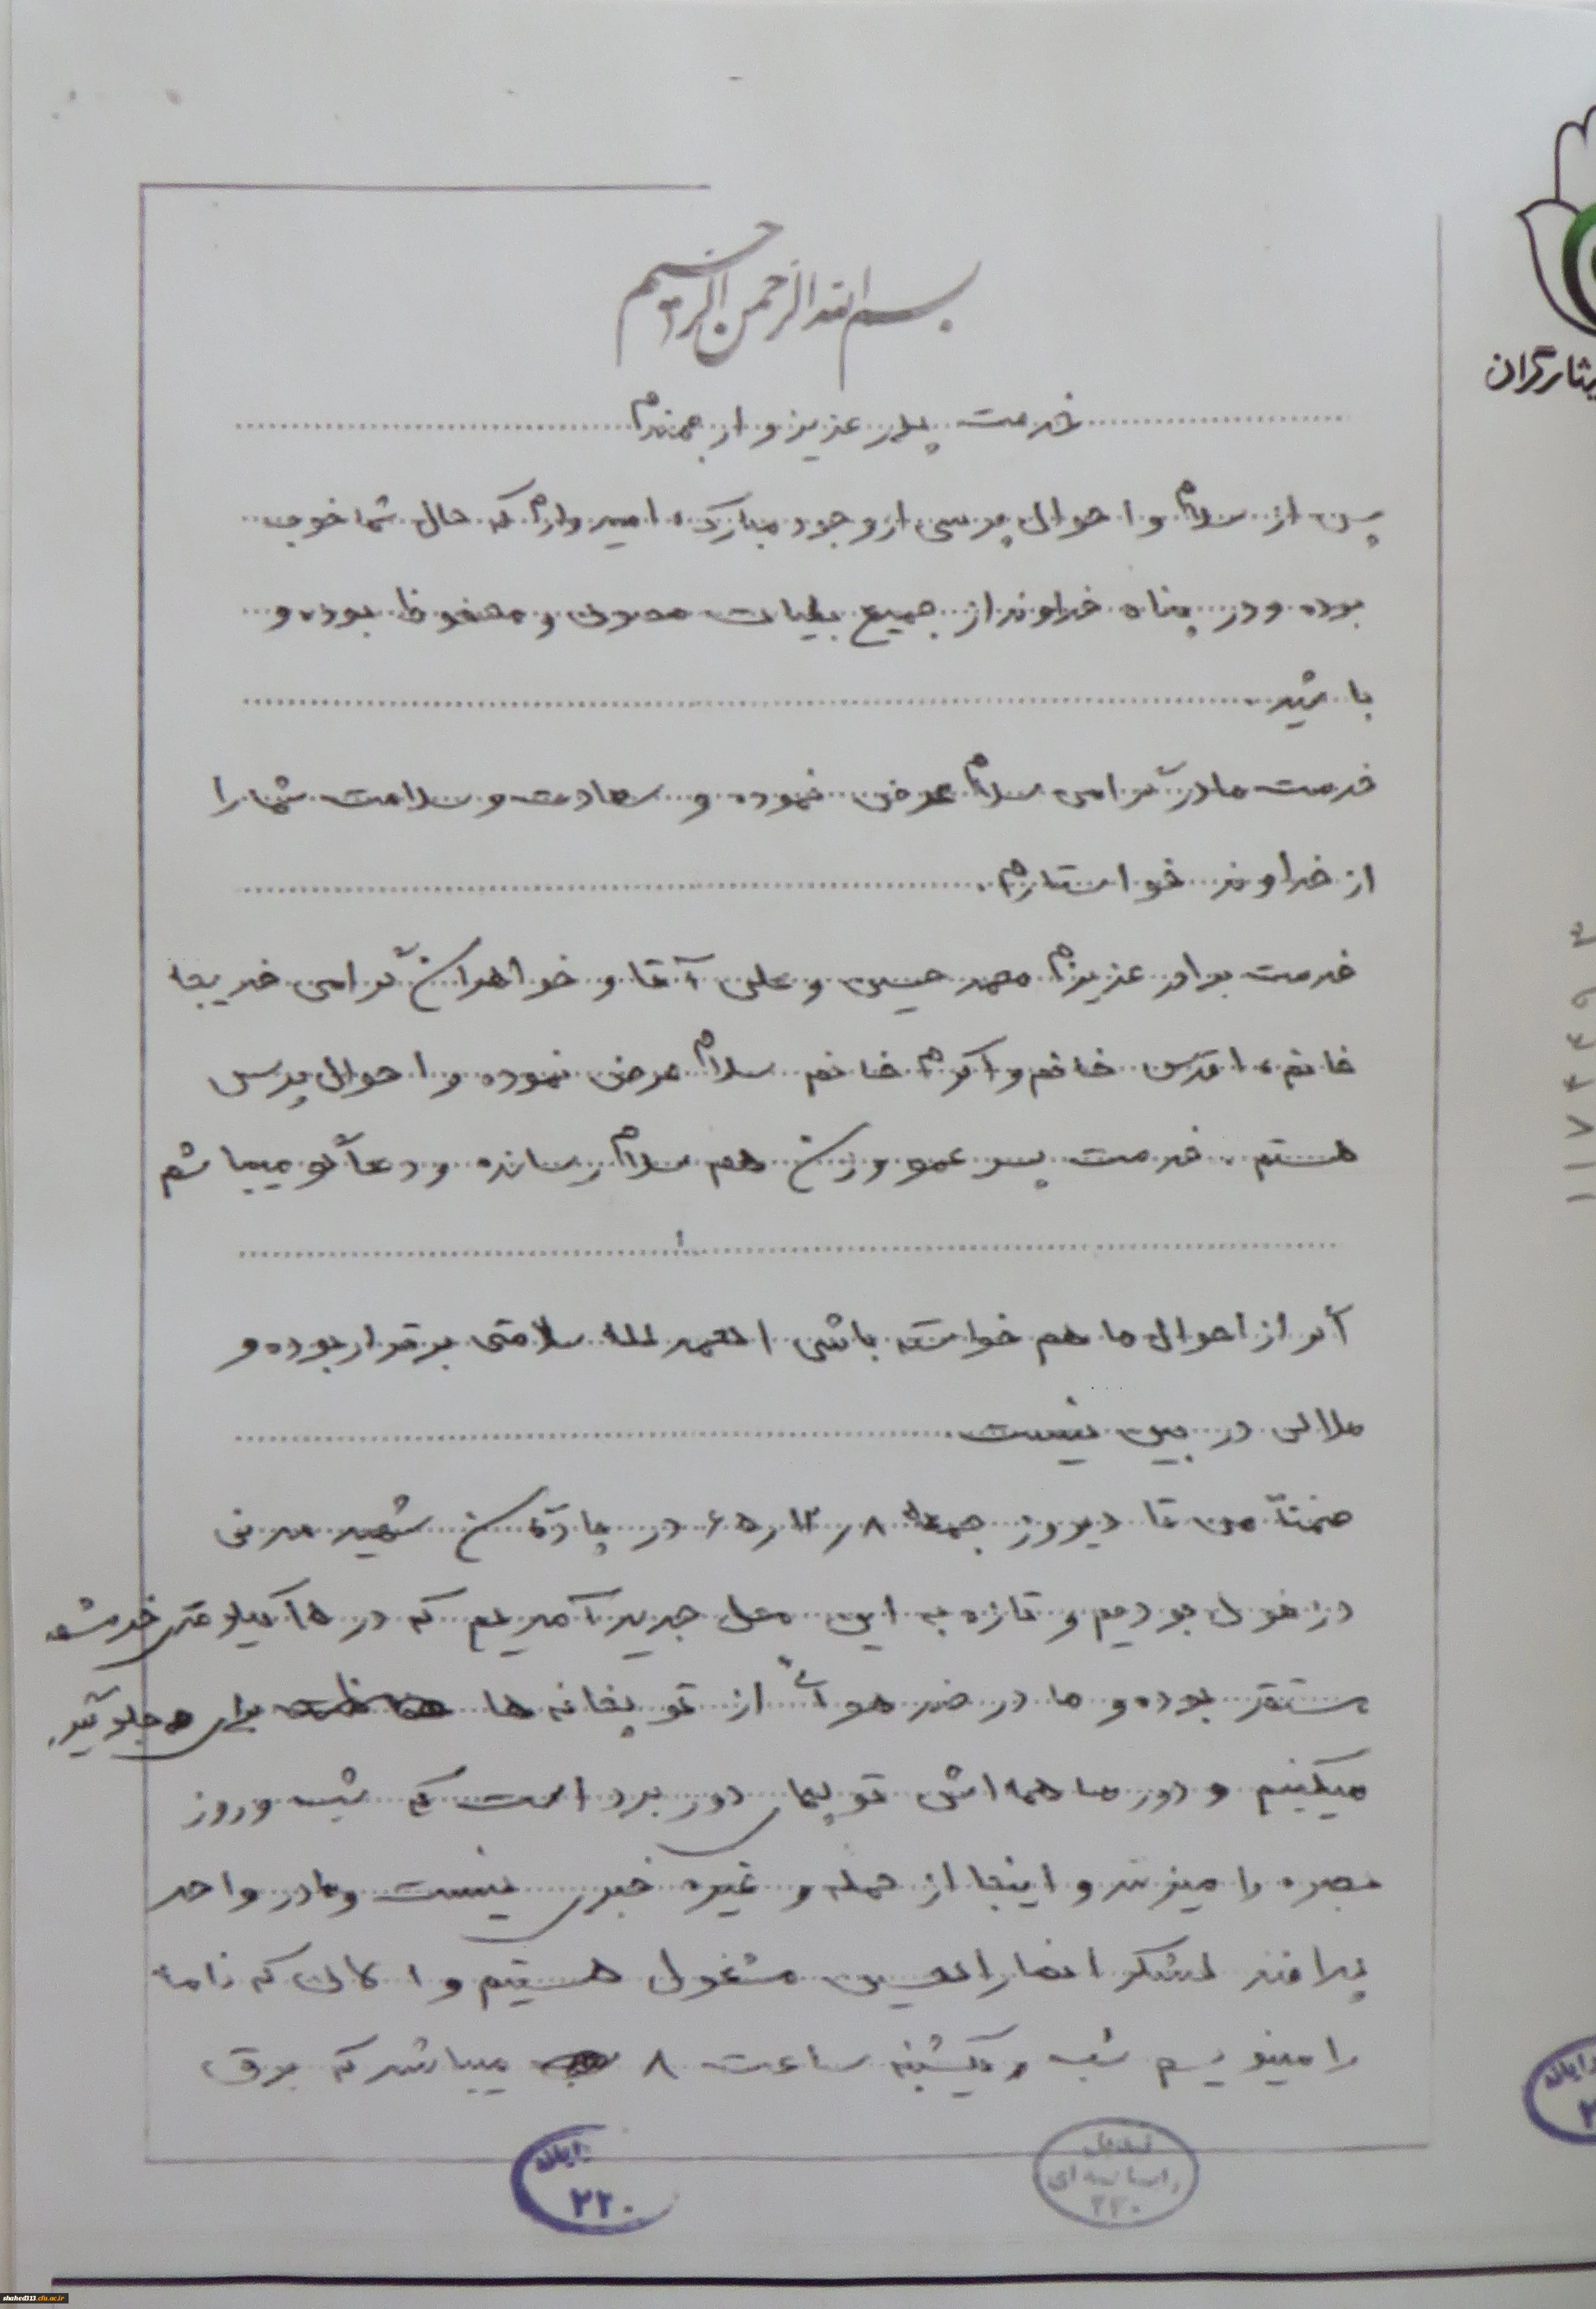 بسم الله الرحمن الرحیم
ثارگران
خدمت پدر عزیز و ارجمندم
پس از سلام و احوال پرسی از وجود مبارک، امیدوارم که حال شما خوب
بوده و در پناه خداوند از جمیع بلیات مصون و محفوظ بوده و
باشید.
خدمت مادر گرامی سلام عرض نموده و سعادت و سلامت شما را
از خداوند خواستارم.
خدمت برادر عزیزم محمد حسین و علی آقا و خواهران گرامی خدیجه
خانم، اقدس خانم و اکرم خانم سلام عرض نموده و احوال پرس
هستم. خدمت پسر عمو وزن هم سلام رسانده و دعاگو میباشم
اگر از احوال ما هم خواسته باشی الحمد لله سلامتی برقرار بوده و
ملالی در بین نیست.
ضمناً من تا دیروز جمعه ۸ر۱۲ر۶۵ در پادگان شهید مدنی
دزفول بودیم و تازه به این محل جدید آمدیم که در ۱۵ کیلومتری خرمشهر
مستقر بوده و ما در ضد هوائی از توپخانه ها برای جلوگیری
میکنیم و دور ما همه اش توپهای دور برد است که شب و روز
بصره را میزنند و اینجا از حمله و غیره خبری نیست و ما در واحد
پدافند لشکر انصار الحسین مشغول هستیم و الان که نامه
را مینویسم شب یکشنبه ساعت ۸ میباشد که برق
رایانه
۲۲۰
تبدیل
رسانه ای
۲۲۰
shahed313.cfu.ac.ir